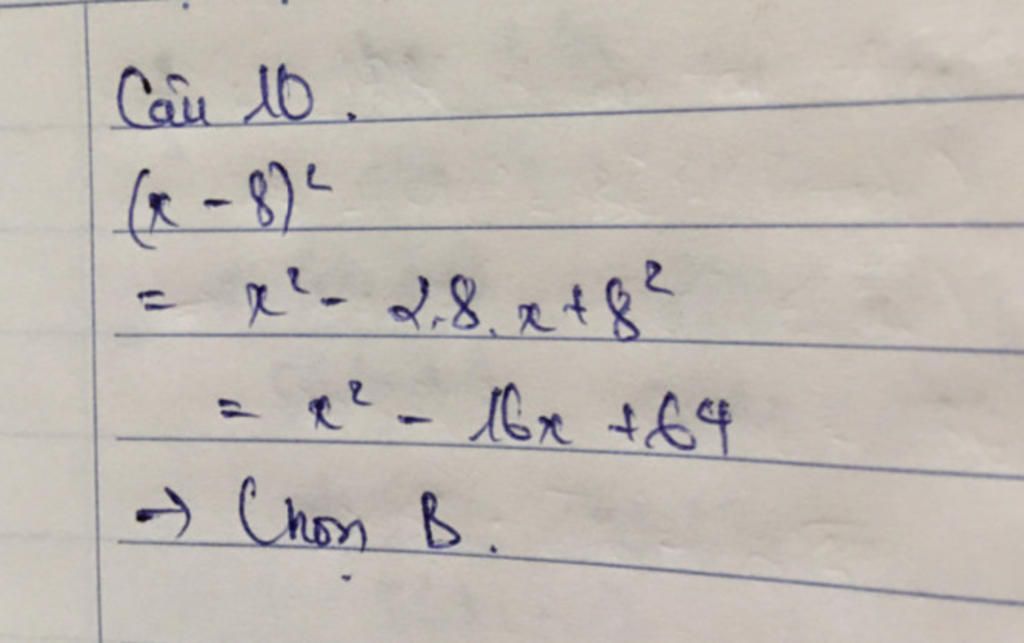 Câu 10.
(x - 8)²
= x² - 2.8.x + 8²
= x² - 16x + 64
→ Chọn B.